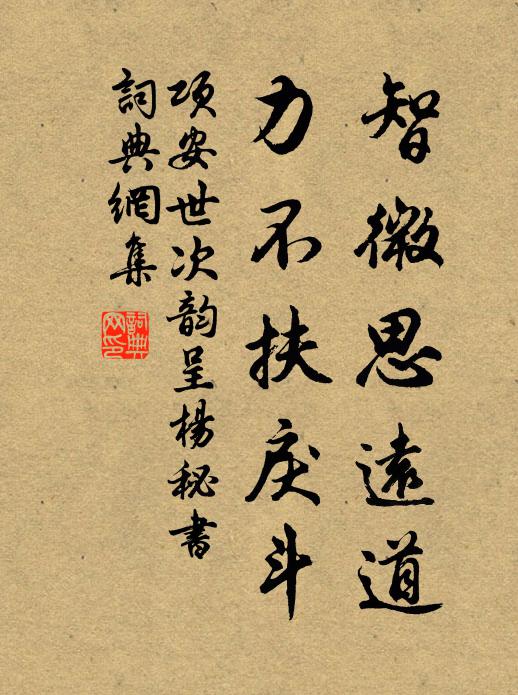 智微思遠道
力不扶戾斗
項安世次韵呈楊秘書
詞典網集
詞典網印